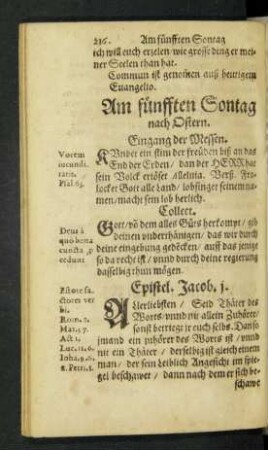 216. Am fünfften Sontag
ich will euch erzelen wie grosse ding er mei-
ner Seelen than hat.
Commun ist genom̃en auß heutigem
Euangelio.
Am fünfften Sontag
nach Ostern.
Eingang der Messen.
Vocem
iucundi-
tatis.
Psal. 65.
Kündet ein stim der freuden biß an das
End der Erden / dan der HERR hat
sein Volck erlöset Alleluia. Verß. Fro-
locket Gott alle Land / lobsinget seinem na-
men / macht sein lob herlich.
Collect.
Deus à
quo bona
cuncta p̱
cedunt
Gott / võ dem alles Güts herkompt / gib
deinen vnderthänigen / das wir durch
deine eingebung gedẽcken / auff das jenige
so da recht ist / vnnd durch deine regierung
dasselbig thun mögen.
Epistel. Jacob. j.
Estote fa-
ctores ver
bi.
Rom. 2.
Mat. 7.
Act 1.
Luc. 11. 6.
1. Petri. 1.
Allerliebsten / Seid Thäter des
Worts / vnnd nit allein Zuhörer /
sonst betriegt jr euch selbs. Dan so
jmand ein zuhörer des Worts ist / vnnd
nit ein Thäter / derselbig ist gleich einem
man / der sein leiblich Angesicht im spie-
gel beschawet / dann nach dem er sich be-
schawe